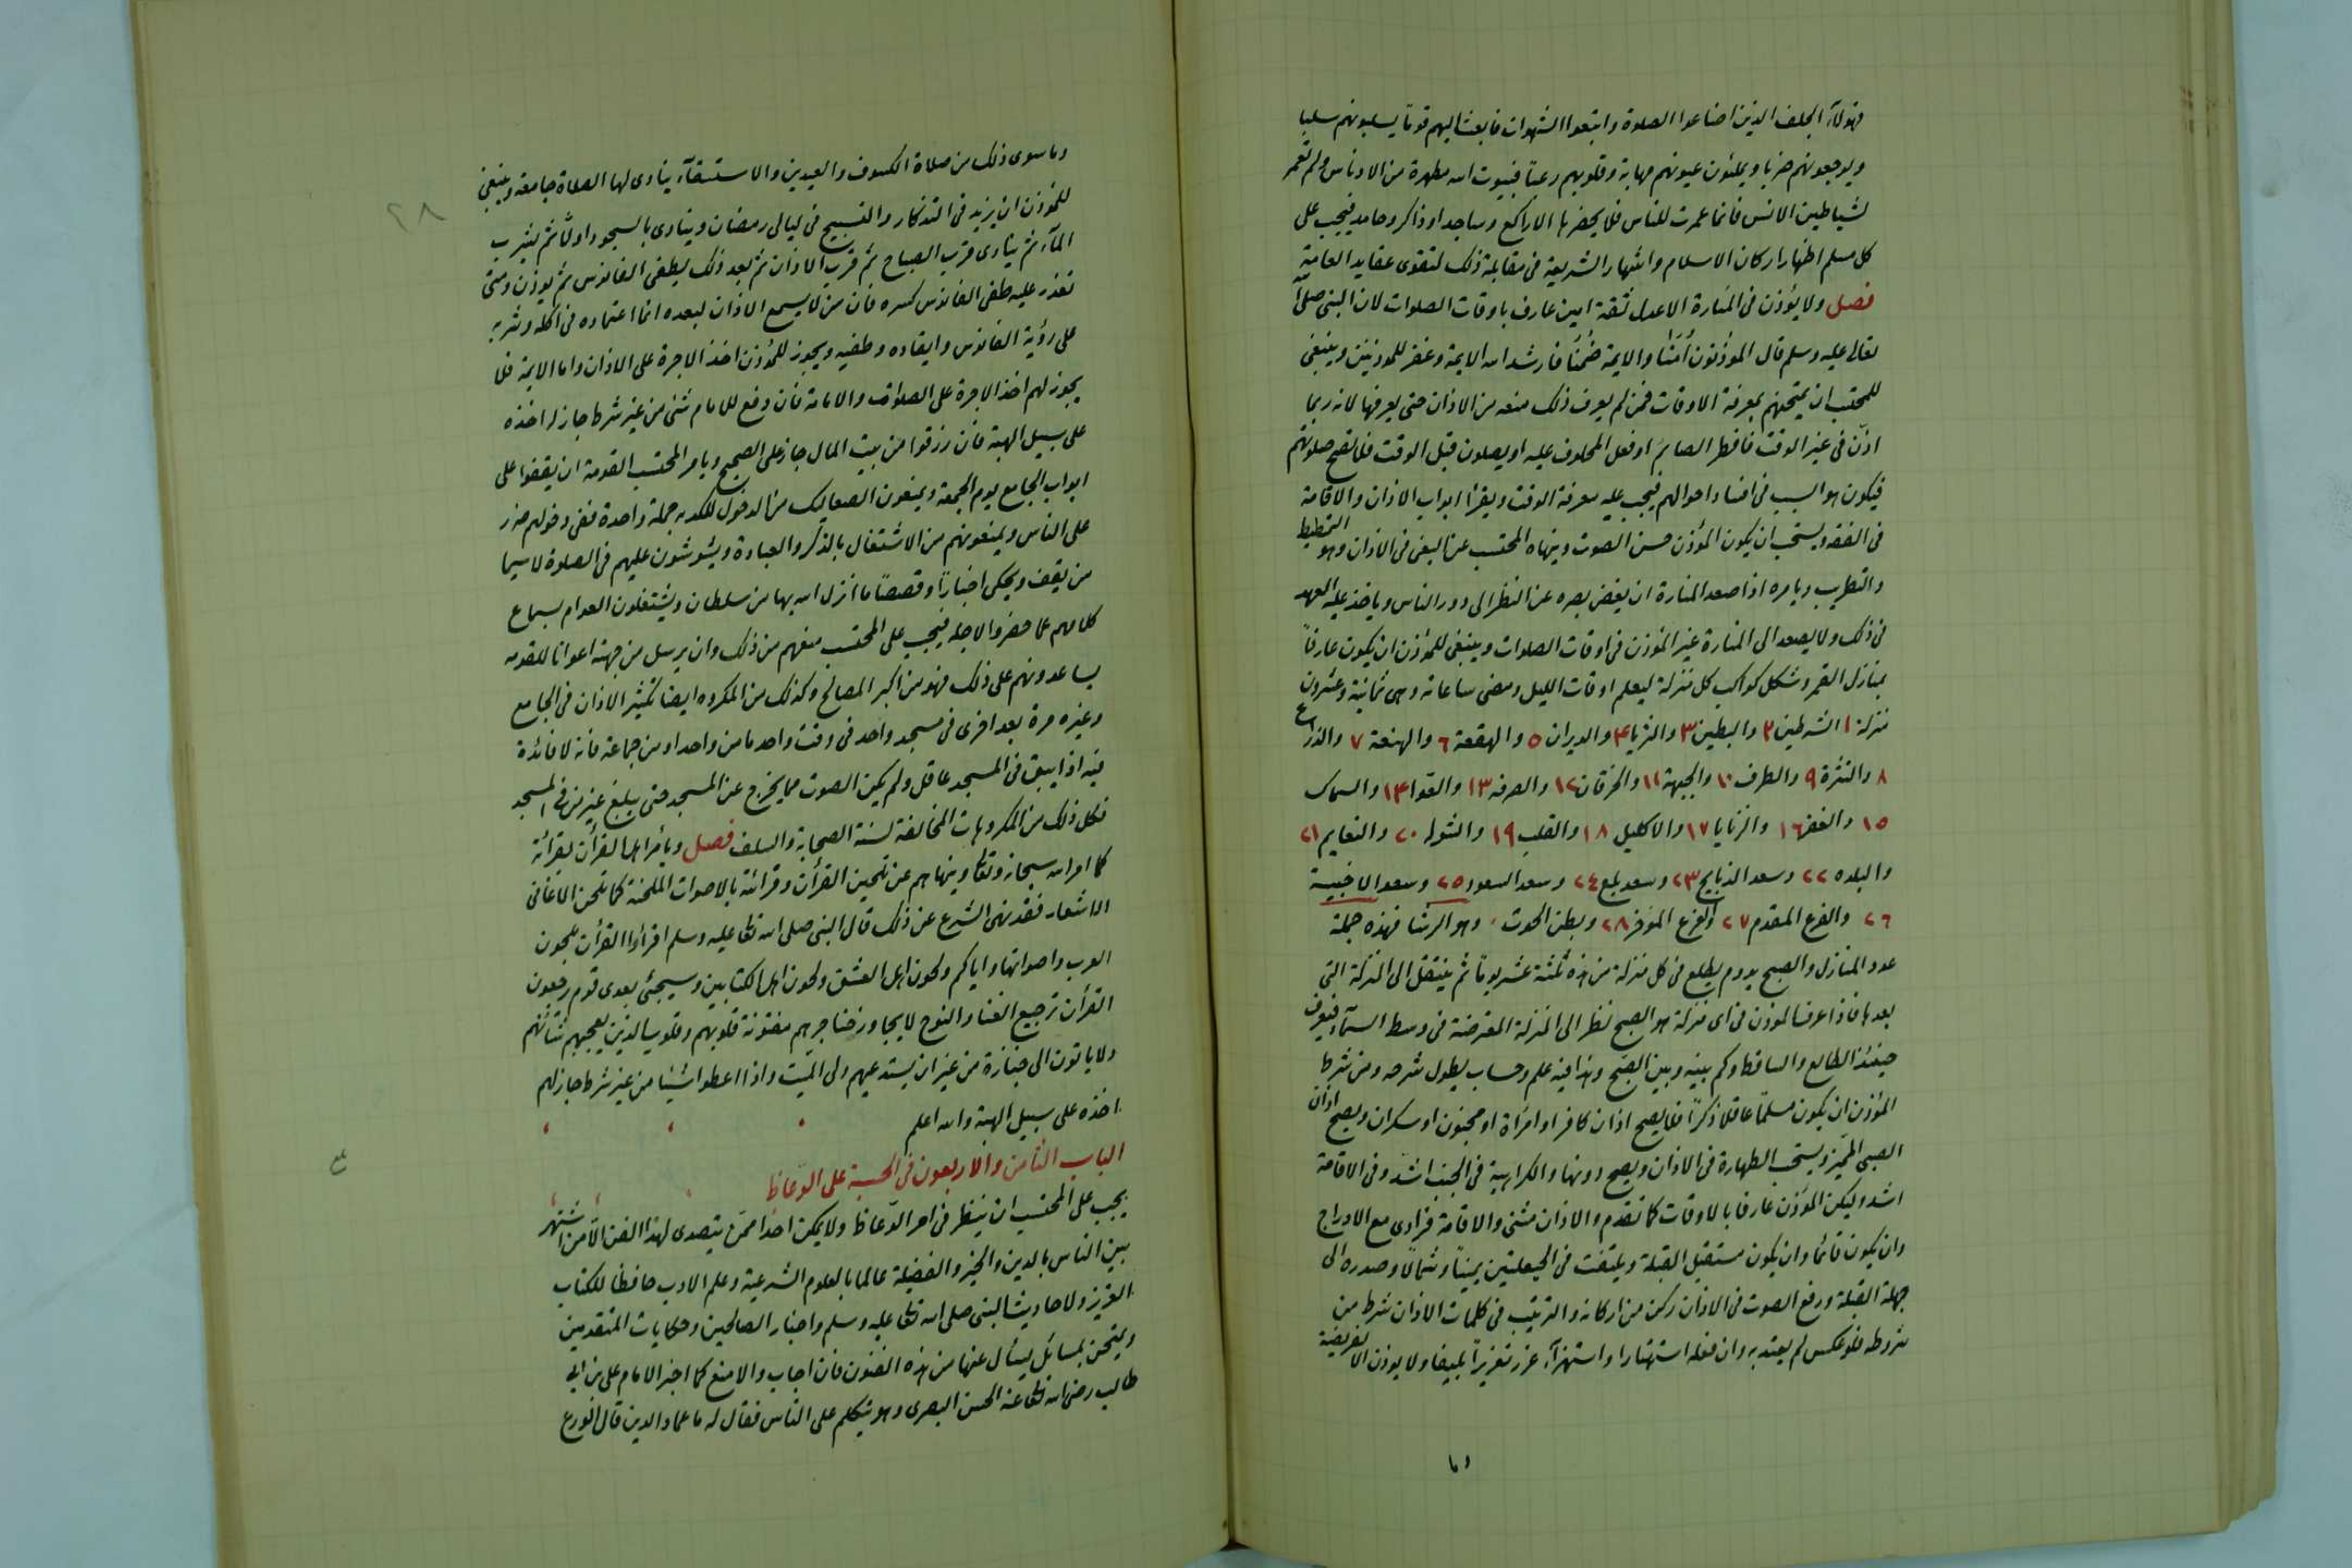 فهؤلاء الخلف الذين اضاعوا الصلوة واتبعوا الشهوات فابعث اليهم قوما يسلبونهم سلبا
ويوجعونهم ضربا ويملئون عيونهم مهابة وقلوبهم رعبا فبيوت الله مطهرة من الادناس ولم تعمر
لشياطين الانس فانما عمرت للناس فلا يحضرها الا راكع وساجد او ذاكر وحامد فيجب على
كل مسلم اظهار اركان الاسلام واشهار الشريعة فى مقابلة ذلك لتقوى عقايد العامة
فصل ولا يؤذن فى المنارة الا عدل ثقة امين عارف باوقات الصلوات لان النبى صلى الله
تعالى عليه وسلم قال الموذنون أمنا والايمة ضمنا فارشد الله الايمة وغفر للموذنين وينبغى
للمحتسب ان يمتحنهم بمعرفة الاوقات فمن لم يعرف ذلك منعه من الاذان حتى يعرفها لانه ربما
اذن فى غير الوقت فافطر الصايم او فعل المحلوف عليه او يصلون قبل الوقت فلا تصح صلوتهم
فيكون هو السبب فى افساد احوالهم فيجب عليه معرفة الوقت ويقرأ ابواب الاذان والاقامة
فى الفقه ويستحب ان يكون المؤذن حسن الصوت وينهاه المحتسب عن البغى فى الاذان وهو التمطيط
والتطريب ويامره اذا صعد المنارة ان يغض بصره عن النظر الى دور الناس وياخذ عليه العهد
فى ذلك ولا يصعد الى المنارة غير المؤذن فى اوقات الصلوات وينبغى للمؤذن ان يكون عارفا
بمنازل القمر وشكل كواكب كل منزلة ليعلم اوقات الليل ومضى ساعاته وهى ثمانية وعشرون
منزلة ١ الشرطين ٢ والبطين ٣ والثريا ٤ والدبران ٥ والهقعة ٦ والهنعة ٧ والذراع
٨ والنثرة ٩ والطرف ١٠ والجبهة ١١ والخرقان ١٢ والصرفه ١٣ والعوا ١٤ والسماك
١٥ والغفر ١٦ والزبايا ١٧ والاكليل ١٨ والقلب ١٩ والشوله ٢٠ والنعايم ٢١
والبلده ٢٢ وسعد الذابح ٢٣ وسعد بلع ٢٤ وسعد السعود ٢٥ وسعد الاخبية
٢٦ والفرع المقدم ٢٧ والفرع الموخر ٢٨ وبطن الحوت وهو الرشا فهذه جملة
عدد المنازل والصبح يدوم يطلع فى كل منزلة من هذه ثلثة عشر يوما ثم ينتقل الى المنزلة التى
بعدها فاذا عرف الموذن فى اى منزلة هو الصبح نظر الى المنزلة المعترضة فى وسط السمآء فيعرف
حينئذ الطالع والساقط وكم بينه وبين الصبح وهذا فيه علم وحساب يطول شرحه ومن شرط
المؤذن ان يكون مسلما عاقلا ذكرا فلا يصح اذان كافر او امرأة او مجنون او سكران ويصح اذان
الصبى المميز ويستحب الطهارة فى الاذان ويصح دونها والكراهية فى الجنب اشد وفى الاقامة
اشد وليكن المؤذن عارفا بالاوقات كما تقدم والاذان مثنى والاقامة فرادى مع الادراج
وان يكون قائما وان يكون مستقبل القبلة ويلتفت فى الحيعلتين يمينا وشمالا وصدره الى
جهة القبلة ورفع الصوت فى الاذان ركن من اركانه والترتيب فى كلمات الاذان شرط من
شروطه فلو عكس لم يعتد به وان فعله استهتارا واستهزآء عزر تعزيرا بليغا ولا يوذن الا لفريضة
وما
٢٨
وما سوى ذلك من صلاة الكسوف والعيدين والاستسقآء ينادى لها الصلاة جامعة وينبغى
للمؤذن ان يزيد فى التذكار والتسبيح فى ليالى رمضان وينادى بالسحور اولا ثم يشرب
المآء ثم ينادى قرب الصباح ثم قرب الاذان ثم بعد ذلك يطفى الفانوس ثم يوذن ومتى
تعذر عليه طفى الفانوس كسره فان من لا يسمع الاذان لبعده انما اعتماده فى اكله وشربه
على رؤية الفانوس وايقاده وطفيه ويجوز للمؤذن اخذ الاجرة على الاذان واما الايمة فلا
يجوز لهم اخذ الاجرة على الصلوة والامامة فان دفع للامام شئ من غير شرط جاز له اخذه
على سبيل الهبة فان رزقوا من بيت المال جاز على الصحيح ويامر المحتسب القومة ان يقفوا على
ابواب الجامع يوم الجمعة ويمنعون الصعاليك من الدخول للكديه جملة واحدة ففى دخولهم ضرر
على الناس ويمنعونهم من الاشتغال بالذكر والعبادة ويشوشون عليهم فى الصلوة لا سيما
من يقف ويحكى اخبارا وقصصا ما انزل الله بها من سلطان ويشتغلون العوام بسماع
كلامهم عما حضروا لاجله فيجب على المحتسب منعهم من ذلك وان يرسل من جهته اعوانا للقومه
يساعدونهم على ذلك فهو من اكبر المصالح وكذلك من المكروه ايضا تكثير الاذان فى الجامع
وغيره مرة بعد اخرى فى مسجد واحد فى وقت واحد ما من واحد او من جماعة فانه لا فائدة
فيه اذا يبق فى المسجد عاقل ولم يكن الصوت مما يخرج عن المسجد حتى يبلغ غير من فى المسجد
فكل ذلك من المكروهات المخالفة لسنة الصحابة والسلف فصل ويأمر اهل القرأن بقرائة
كما امر الله سبحانه وتعالى وينهاهم عن تلحين القرأن وقرائته بالاصوات الملحنة كما تلحن الاغانى
الاشعار فقد نهى الشرع عن ذلك قال النبى صلى الله تعالى عليه وسلم اقرأوا القرأن بلحون
العرب واصواتها واياكم ولحون اهل العشق ولحون اهل الكتابين وسيجئ بعدى قوم رجعون
القرأن ترجيع الغنا والنوح لا يجاوز حناجرهم مفتونة قلوبهم وقلوب الذين يعجبهم شأنهم
ولا ياتون الى جنازة من غير ان يستدعيهم ولى الميت واذا اعطوا شيئا من غير شرط جاز لهم
اخذه على سبيل الهبة والله اعلم
الباب الثامن والاربعون فى الحسبة على الوعاظ
يجب على المحتسب ان ينظر فى امر الوعاظ ولا يمكن احدا ممن يتصدى لهذا الفن الا من اشتهر
بين الناس بالدين والخير والفضيلة عالما بالعلوم الشرعية وعلم الادب حافظا للكتاب
العزيز ولاحاديث النبى صلى الله تعالى عليه وسلم واخبار الصالحين وحكايات المتقدمين
ويمتحن بمسائل يسأل عنها من هذه الفنون فان اجاب والا منع كما اختبر الامام على بن ابى
طالب رضى الله تعالى عنه الحسن البصرى وهو يتكلم على الناس فقال له ما عماد الدين قال الورع